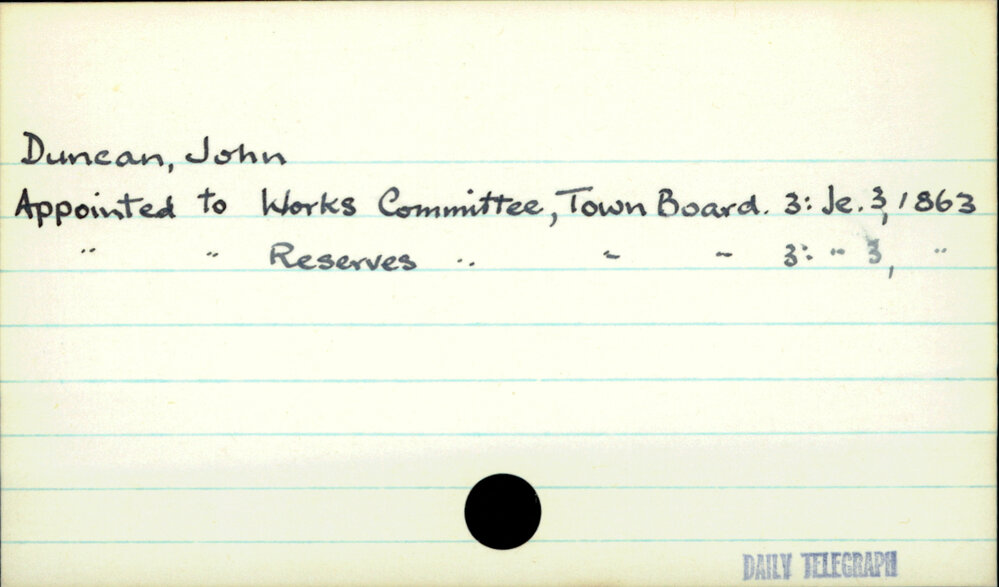 Duncan, John
Appointed to Works Committee, Town Board. 3: Je. 3, 1863
" " Reserves " " " 3: " 3, "
DAILY TELEGRAPH